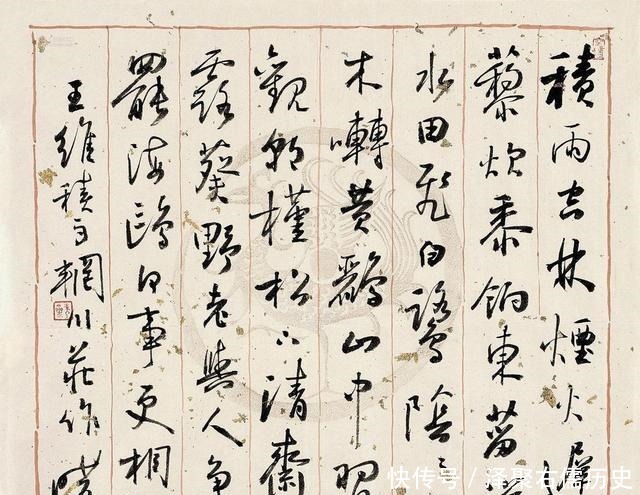 積雨空林煙火遲
藜炊黍餉東菑
水田飛白鷺陰
木囀黃鸝山中習
觀朝槿松下清齋
露葵野老與人爭
罷海鷗何事更相
王維積雨輞川莊作
快传号 / 泽聚右儒历史